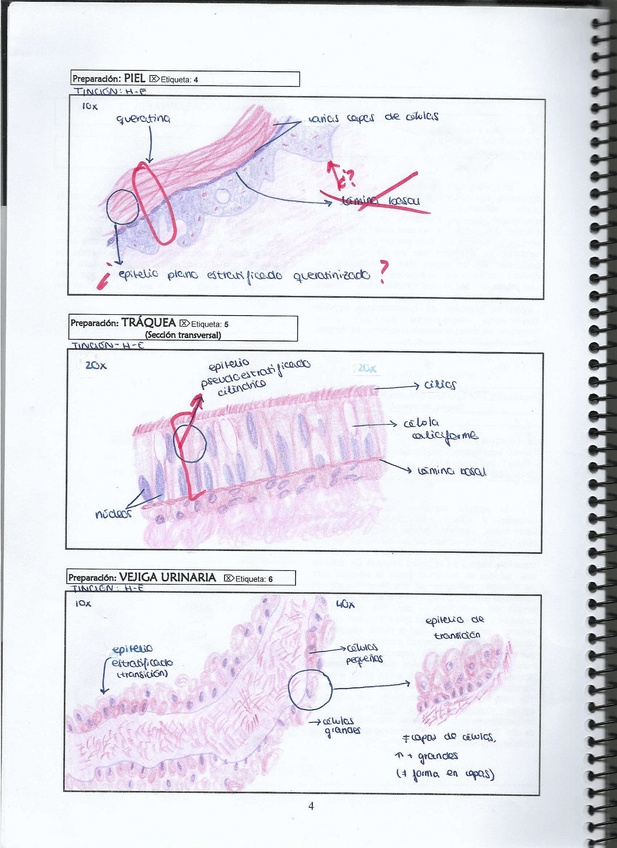 Preparación: PIEL ☒ Etiqueta: 4
TINCIÓN: H-E
10x
queratina
varias capas de células
¿?
lámina basal
¿ epitelio plano estratificado queratinizado ?
Preparación: TRÁQUEA ☒ Etiqueta: 5
(Sección transversal)
TINCIÓN - H-E
20x
epitelio
pseudoestratificado
cilíndrico
20x
cilios
célula
caliciforme
lámina basal
núcleos
Preparación: VEJIGA URINARIA ☒ Etiqueta: 6
TINCIÓN: H-E
10x
40x
epitelio
estratificado
(transición)
células
pequeñas
células
grandes
epitelio de
transición
≠ capas de células,
↑ + grandes
(≠ forma en capas)
4